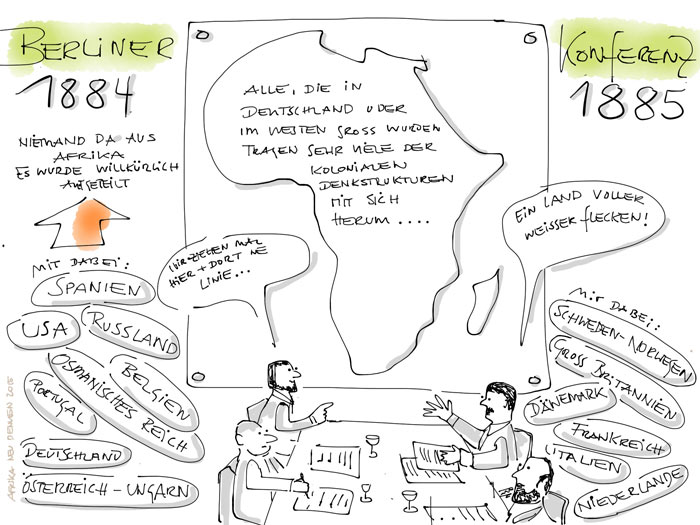 BERLINER
1884
NIEMAND DA AUS
AFRIKA
ES WURDE WILLKÜRLICH
AUFGETEILT
MIT DABEI:
SPANIEN
USA
RUSSLAND
OSMANISCHES REICH
BELGIEN
PORTUGAL
DEUTSCHLAND
ÖSTERREICH-UNGARN
AFRIKA NEU DENKEN 2015
ALLE, DIE IN
DEUTSCHLAND ODER
IM WESTEN GROSS WURDEN
TRAGEN SEHR VIELE DER
KOLONIALEN
DENKSTRUKTUREN
MIT SICH
HERUM ....
WIR ZIEHEN MAL
HIER + DORT NE
LINIE...
EIN LAND VOLLER
WEISSER FLECKEN!
KONFERENZ
1885
MIT DABEI:
SCHWEDEN-NORWEGEN
GROSS BRITANNIEN
DÄNEMARK
FRANKREICH
ITALIEN
NIEDERLANDE